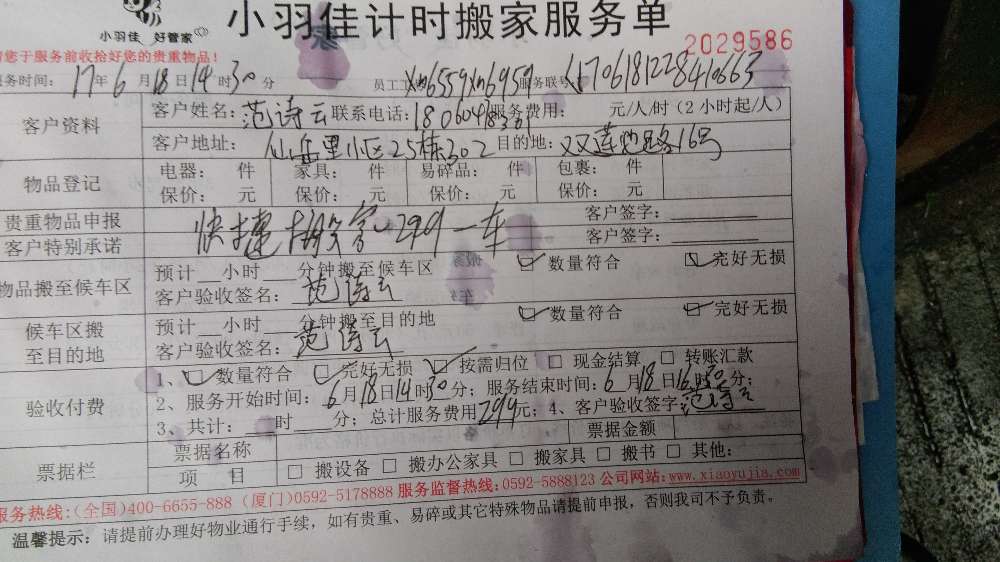 小羽佳 好管家
小羽佳计时搬家服务单
2029586
请您于服务前收拾好您的贵重物品!
服务时间: 17年6月18日14时30分 员工工号 xn6559 xn6959 服务联号
客户资料 客户姓名: 范诗云 联系电话: 服务费用: 元/人/时(2小时起/人)
客户地址: 仙岳里小区25栋302 目的地: 双莲池路16号
物品登记 电器: 件 家具: 件 易碎品: 件 包裹: 件
保价: 元 保价: 元 保价: 元 保价: 元
贵重物品申报 客户签字:
快捷搬家 299一车
客户特别承诺 客户签字:
物品搬至候车区 预计 小时 分钟搬至候车区 数量符合 完好无损
客户验收签名: 范诗云
候车区搬至目的地 预计 小时 分钟搬至目的地 数量符合 完好无损
客户验收签名: 范诗云
验收付费 1、 数量符合 完好无损 按需归位 现金结算 转账汇款
2、服务开始时间: 6月18日14时30分; 服务结束时间: 6月18日16时30分;
3、共计: 时 分; 总计服务费用299元; 4、客户验收签字 范诗云
票据栏 票据名称 票据金额
项 目 搬设备 搬办公家具 搬家具 搬书 其他:
服务热线:(全国)400-6655-888 (厦门)0592-5178888 服务监督热线:0592-5888123 公司网站:www.xiaoyujia.com
温馨提示: 请提前办理好物业通行手续,如有贵重、易碎或其它特殊物品请提前申报,否则我司不予负责。